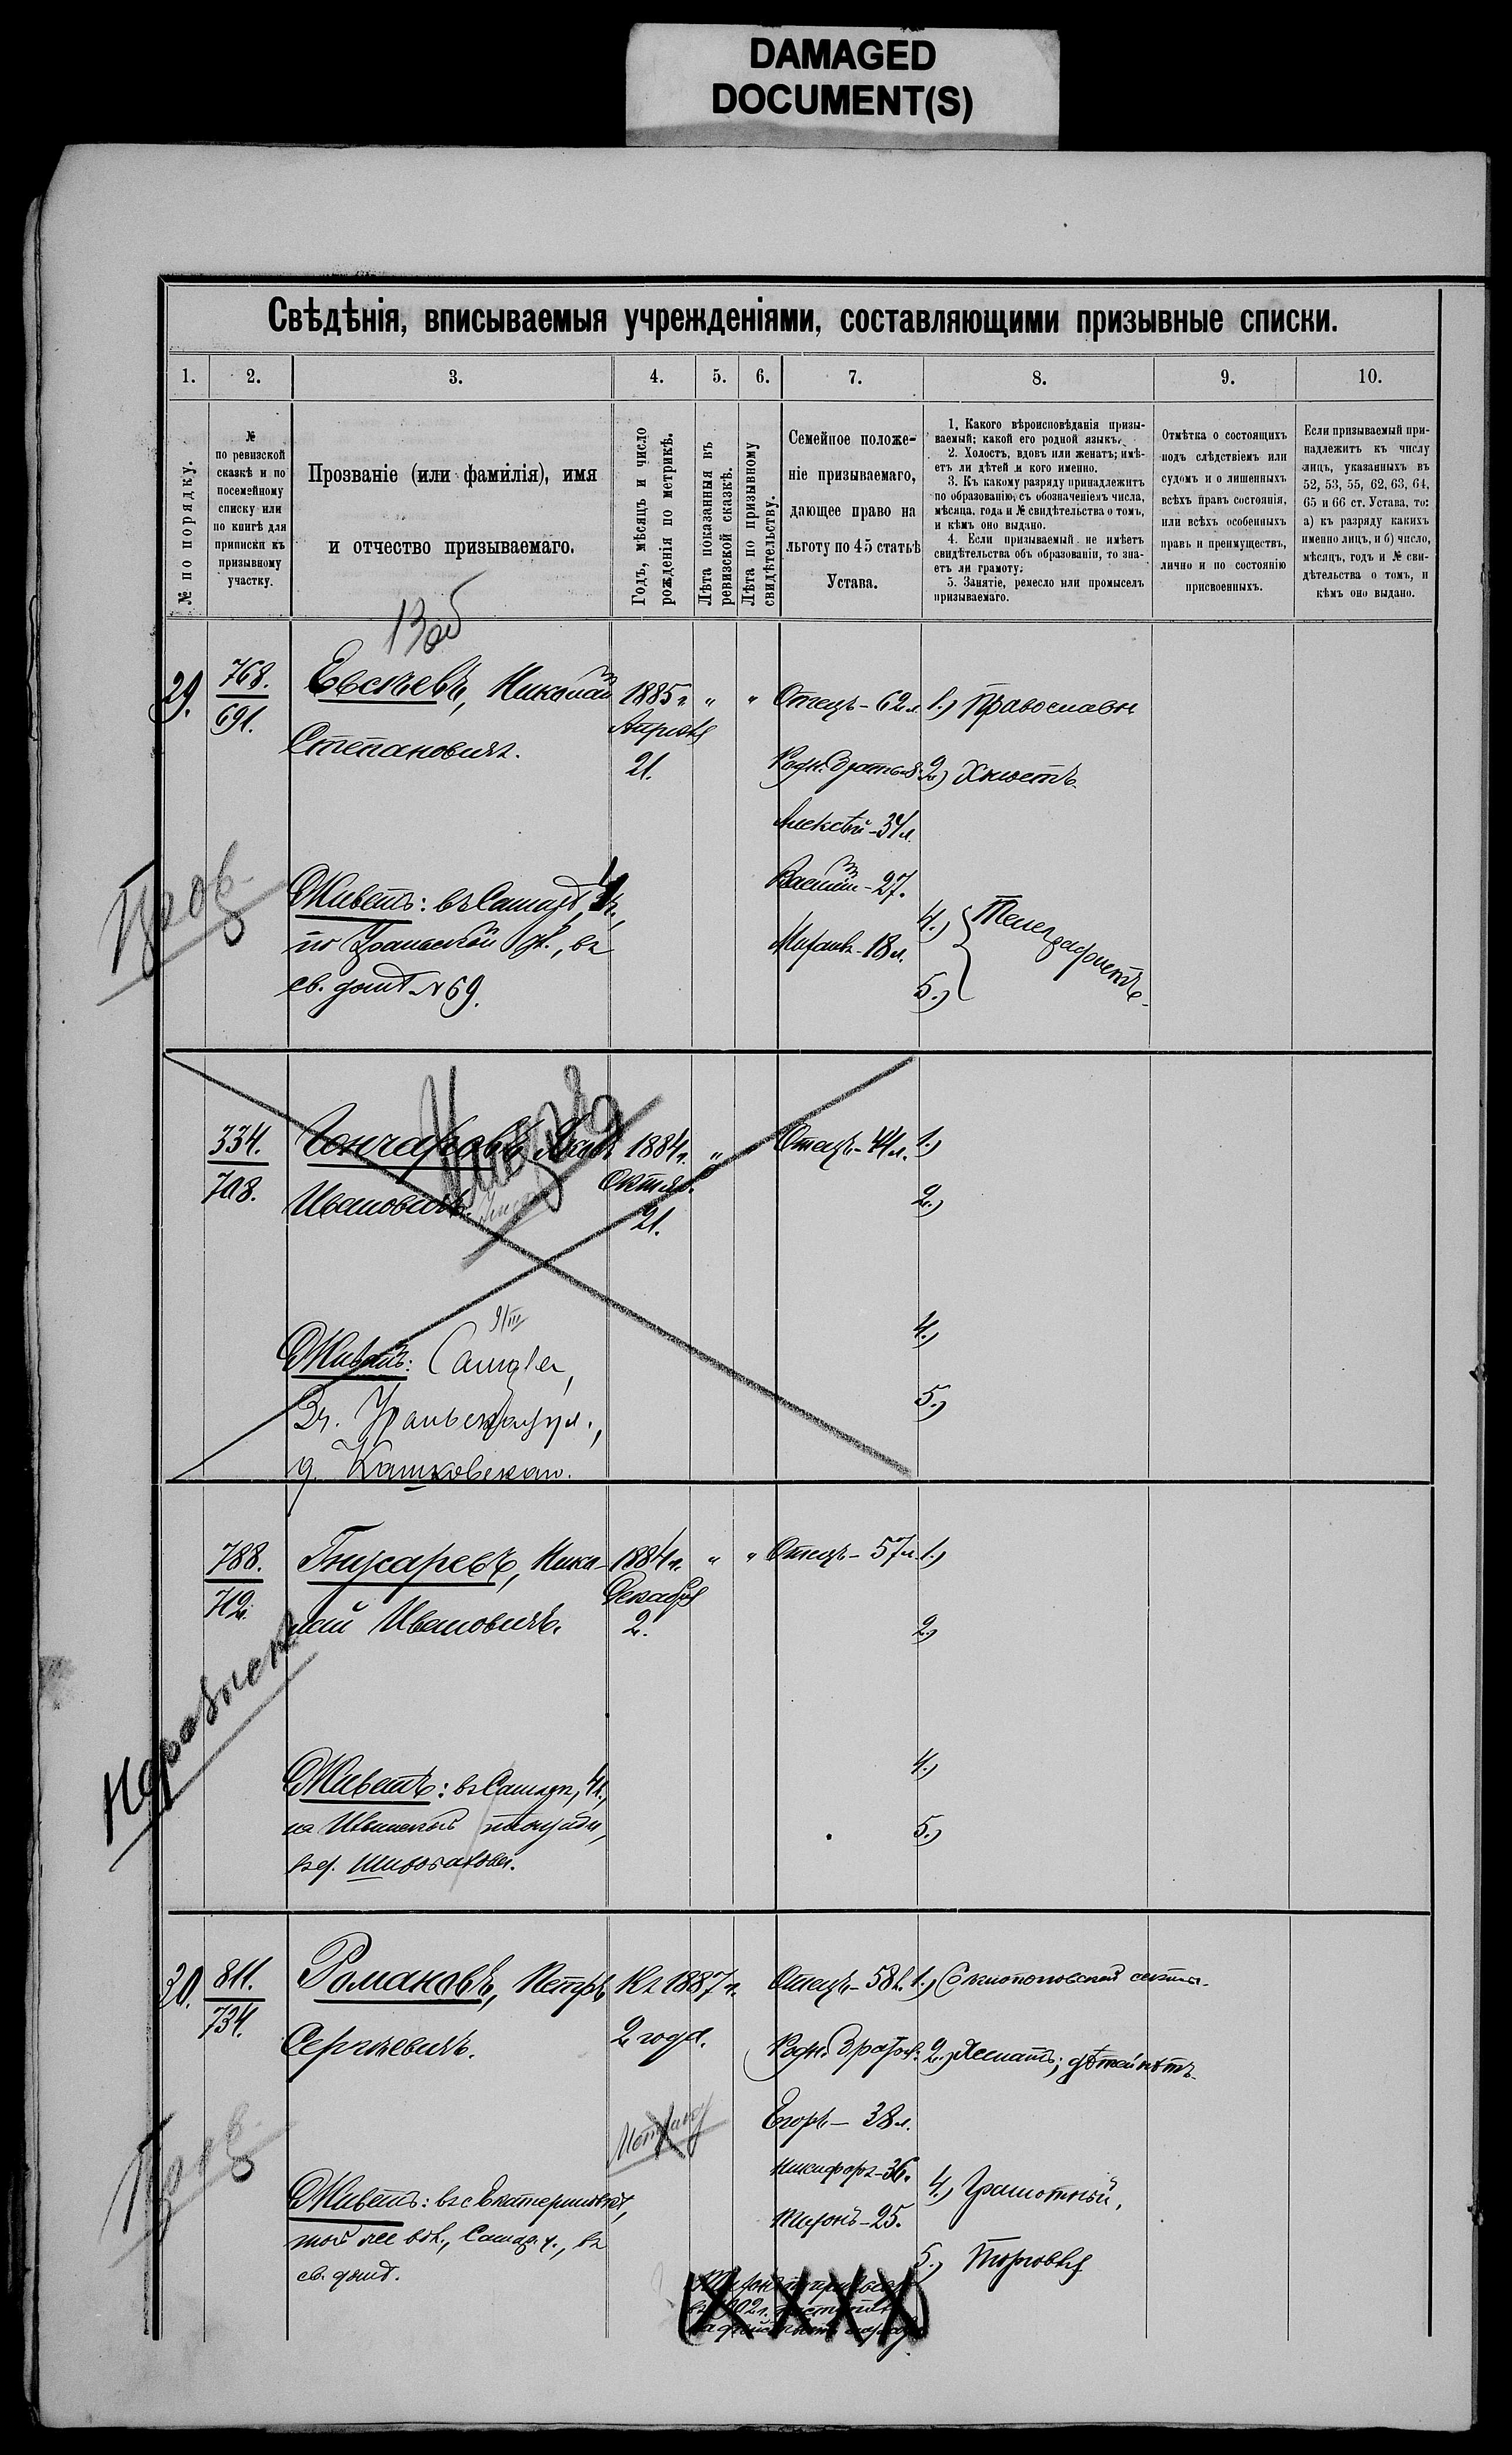 DAMAGED
DOCUMENT(S)
Свѣдѣнія, вписываемыя учрежденіями, составляющими призывные списки.
1. 2. 3. 4. 5. 6. 7. 8. 9. 10.
№ по порядку.
№
по ревизской
сказкѣ и по
посемейному
списку или
по книгѣ для
приписки къ
призывному
участку.
Прозваніе (или фамилія), имя
и отчество призываемаго.
Годъ, мѣсяцъ и число
рожденія по метрикѣ.
Лѣта показанныя въ
ревизской сказкѣ.
Лѣта по призывному
свидѣтельству.
Семейное положе-
ніе призываемаго,
дающее право на
льготу по 45 статьѣ
Устава.
1. Какого вѣроисповѣданія призы-
ваемый; какой его родной языкъ.
2. Холостъ, вдовъ или женатъ; имѣ-
етъ ли дѣтей и кого именно.
3. Къ какому разряду принадлежитъ
по образованію, съ обозначеніемъ числа,
мѣсяца, года и № свидѣтельства о томъ,
и кѣмъ оно выдано.
4. Если призываемый не имѣетъ
свидѣтельства объ образованіи, то зна-
етъ ли грамоту.
5. Занятіе, ремесло или промыселъ
призываемаго.
Отмѣтка о состоящихъ
подъ слѣдствіемъ или
судомъ и о лишенныхъ
всѣхъ правъ состоянія,
или всѣхъ особенныхъ
правъ и преимуществъ,
лично и по состоянію
присвоенныхъ.
Если призываемый при-
надлежитъ къ числу
лицъ, указанныхъ въ
52, 53, 55, 62, 63, 64,
65 и 66 ст. Устава, то:
а) къ разряду какихъ
именно лицъ, и б) число,
мѣсяцъ, годъ и № сви-
дѣтельства о томъ, и
кѣмъ оно выдано.
29. 768. Евсѣевъ, Николай 1885 г. " " Отецъ - 62 л. 1.) Православн
691. Степановичъ. Апрѣля
21. Родн. братья: 2.) Холостъ
Алексѣй - 34 л.
Василій - 27.
Живетъ: въ Самарѣ,
по Уральской ул., въ
св. домѣ № 69.
Михаилъ - 18 л.
4.) Телеграфистъ.
5.)
334. Гончаровъ, 1884 г. " Отецъ - 44 л. 1.)
708. Ивановичъ. Октяб. 2.)
21.
Живетъ: Самара, 4.)
5.)
788. Ника- 1884 г. " " Отецъ - 57 л. 1.)
712. Декабря
Ивановичъ. 2. 2.)
Живетъ: въ Самарѣ, 4 ч., 4.)
площади, 5.)
30. 811. Романовъ, Петръ Къ 1887 г. Отецъ - 58 л. 1.) секты.
734. Сергѣевичъ. 2 года. Родн. братья: 2.) Женатъ; дѣтей нѣтъ.
Егоръ - 38 л.
Никифоръ - 36.
Живетъ: въ с. Екатериновкѣ, 4.) Грамотный.
той же вол., Самар. у., въ
св. домѣ.
Тихонъ - 25.
5.) Торговля